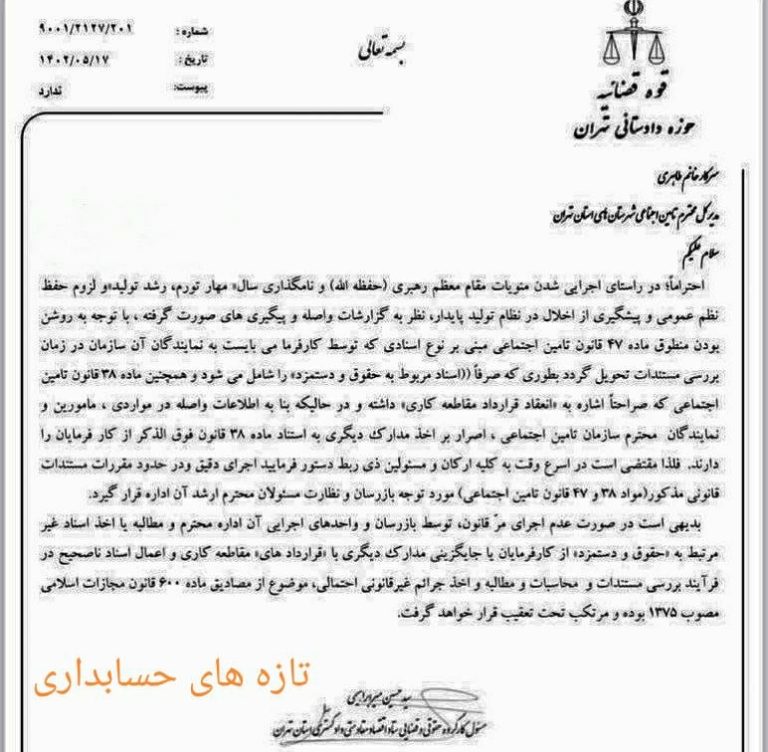 بسمه تعالی
شماره : ۹۰۰۱/۲۱۲۷/۲۰۱
تاریخ : ۱۴۰۲/۰۵/۱۷
پیوست: ندارد
قوه قضائیه
حوزه دادستانی تهران
سرکار خانم طاهری
مدیرکل محترم تامین اجتماعی شهرستان های استان تهران
سلام علیکم
احتراماً؛ در راستای اجرایی شدن منویات مقام معظم رهبری (حفظه الله) و نامگذاری سال» مهار تورم، رشد تولید»و لزوم حفظ
نظم عمومی و پیشگیری از اخلال در نظام تولید پایدار، نظر به گزارشات واصله و پیگیری های صورت گرفته ، با توجه به روشن
بودن منطوق ماده ۴۷ قانون تامین اجتماعی مبنی بر نوع اسنادی که توسط کارفرما می بایست به نمایندگان آن سازمان در زمان
بررسی مستندات تحویل گردد بطوری که صرفاً ((اسناد مربوط به حقوق و دستمزد» را شامل می شود و همچنین ماده ۳۸ قانون تامین
اجتماعی که صراحتاً اشاره به «انعقاد قرارداد مقاطعه کاری» داشته و در حالیکه بنا به اطلاعات واصله در مواردی ، مامورین و
نمایندگان محترم سازمان تامین اجتماعی ، اصرار بر اخذ مدارک دیگری به استناد ماده ۳۸ قانون فوق الذکر از کار فرمایان را
دارند. فلذا مقتضی است در اسرع وقت به کلیه ارکان و مسئولین ذی ربط دستور فرمایید اجرای دقیق ودر حدود مقررات مستندات
قانونی مذکور(مواد ۳۸ و ۴۷ قانون تامین اجتماعی) مورد توجه بازرسان و نظارت مسئولان محترم ارشد آن اداره قرار گیرد.
بدیهی است در صورت عدم اجرای مرّ قانون، توسط بازرسان و واحدهای اجرایی آن اداره محترم و مطالبه یا اخذ اسناد غیر
مرتبط به «حقوق و دستمزد» از کارفرمایان یا جایگزینی مدارک دیگری با «قرارداد های» مقاطعه کاری و اعمال اسناد ناصحیح در
فرآیند بررسی مستندات و محاسبات و مطالبه و اخذ جرائم غیرقانونی احتمالی، موضوع از مصادیق ماده ۶۰۰ قانون مجازات اسلامی
مصوب ۱۳۷۵ بوده و مرتکب تحت تعقیب قرار خواهد گرفت.
تازه های حسابداری
سید حسین میرابراهیمی
مسئول کارگروه حقوقی و قضایی ستاد اقتصاد مقاومتی دادگستری استان تهران